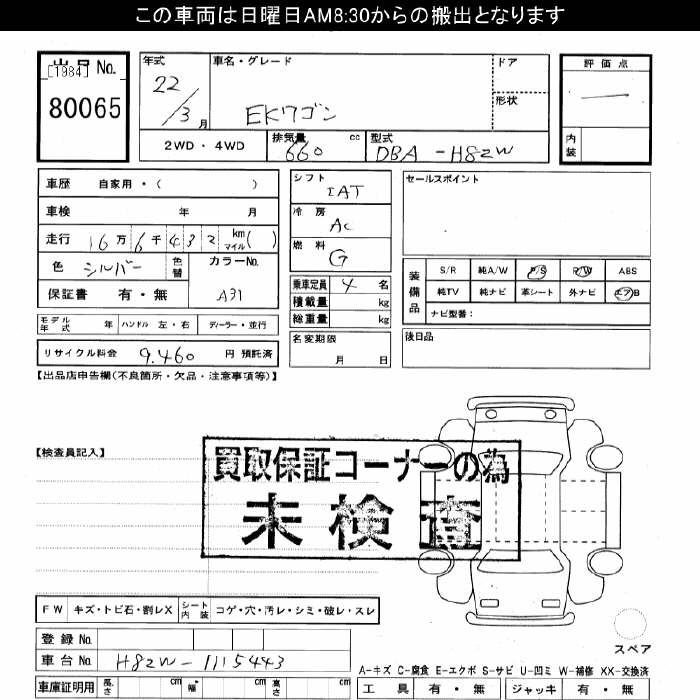 この車両は日曜日AM8:30からの搬出となります
出品 No.
[1984]
80065
年式
22/3月
車名・グレード
EKワゴン
ドア
形状
評価点
—
内装
2WD・4WD
排気量 660 cc
型式 DBA-H82W
車歴 自家用・( )
車検 年 月
走行 16万6千432 km マイル( )
色 シルバー 色替
カラーNo. A31
保証書 有・無
モデル年式 年 ハンドル 左・右 ディーラー・並行
リサイクル料金 9,460 円 預託済
シフト IAT
冷房 AC
燃料 G
乗車定員 4 名
積載量 kg
総重量 kg
名変期限 月 日
セールスポイント
装備品
S/R 純A/W P/S P/W ABS
純TV 純ナビ 革シート 外ナビ エアB
ナビ型番:
後日品
【出品店申告欄(不良箇所・欠品・注意事項等)】
【検査員記入】
買取保証コーナーの為
未検査
FW キズ・トビ石・割レX シート内装 コゲ・穴・汚レ・シミ・破レ・スレ
登録 No.
車台 No. H82W-1115443
車庫証明用 長さ cm 幅 cm 高さ cm
スペア
A-キズ C-腐食 E-エクボ S-サビ U-凹ミ W-補修 XX-交換済
工具 有・無 ジャッキ 有・無